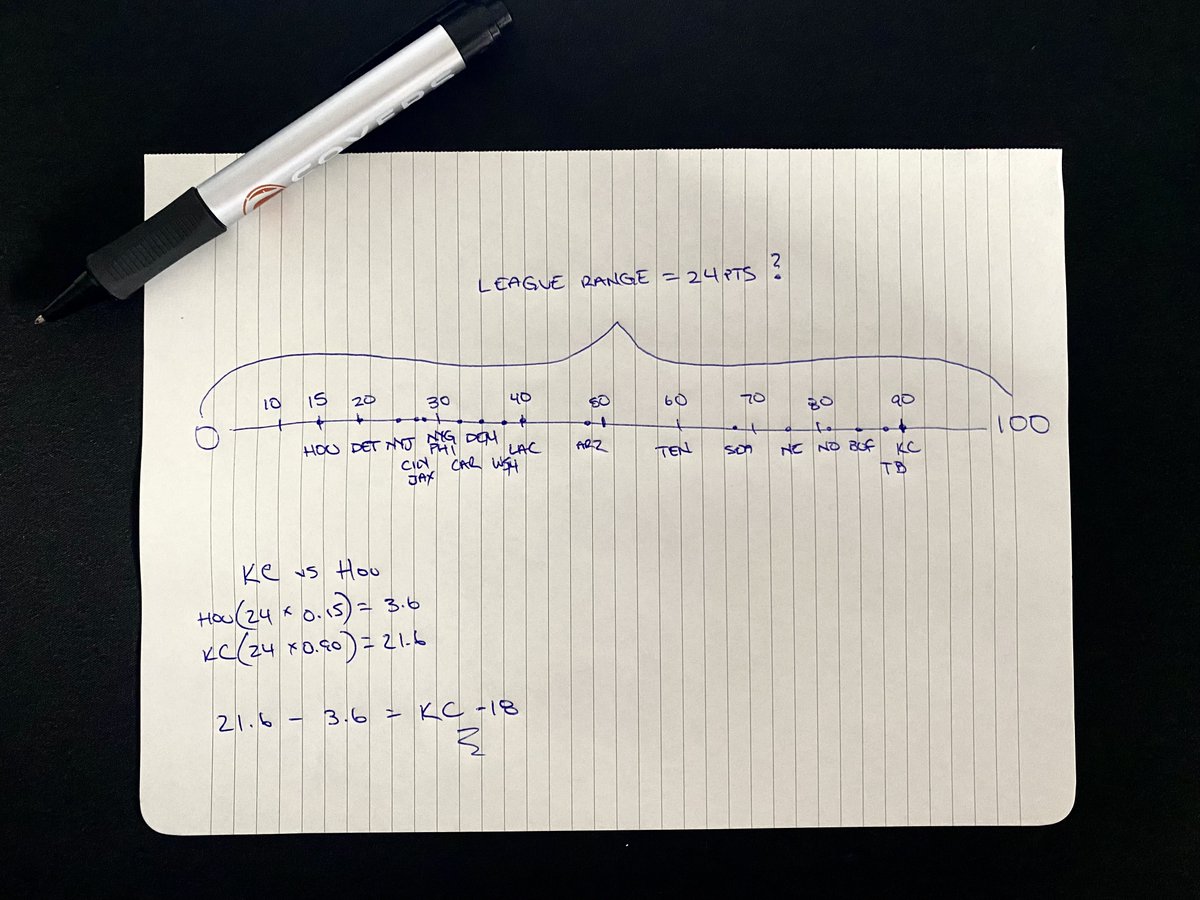 COVERS
LEAGUE RANGE = 24 PTS ?
0 10 15 20 30 40 50 60 70 80 90 100
HOU DET NYJ NYG DEN LAC ARZ TEN NE NO BUF KC
CIN PHI CAR WSH TB
JAX
KC vs HOU
HOU(24 × 0.15) = 3.6
KC(24 × 0.90) = 21.6
21.6 - 3.6 = KC -18